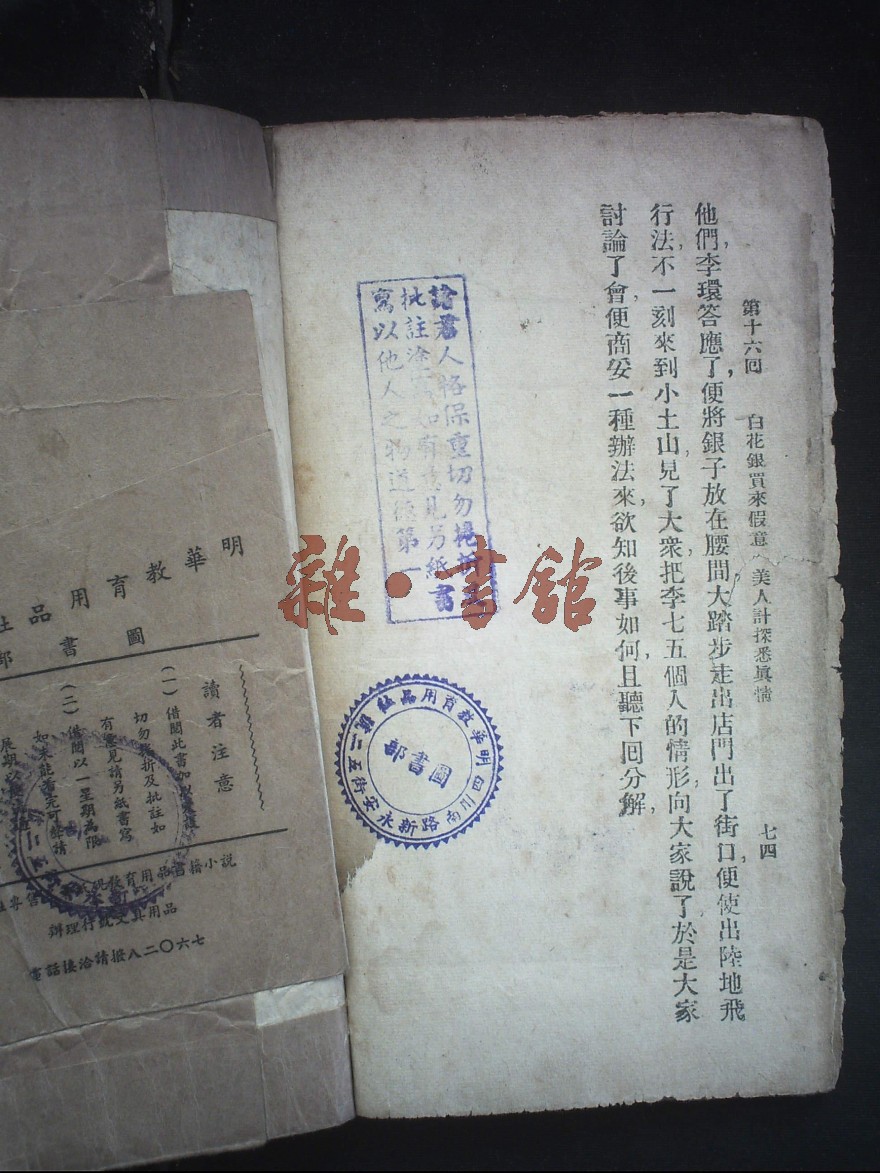 第十六回 白花銀買來假意 美人計探悉眞情 七四
他們，李環答應了，便將銀子放在腰間大踏步走出店門出了街口，便使出陸地飛
行法，不一刻來到小土山，見了大衆，把李七五個人的情形，向大家說了，於是大家
討論了會，便商妥一種辦法來，欲知後事如何，且聽下回分解，
人格保重切勿
批註塗 如有意見另紙書
寫以他人之物道德第一
雜·書館
明華教育用品社
圖書部
四川南路新永安街
明華教育用品社
圖書部
讀者注意
(一) 借閱此書
切勿 折及批註如
有意見請另紙書寫
(二) 借閱以一星期為限
如未能 完可 請
展期
教育用品書籍小說
辦理 文具用品
電話接洽請撥八二〇六七